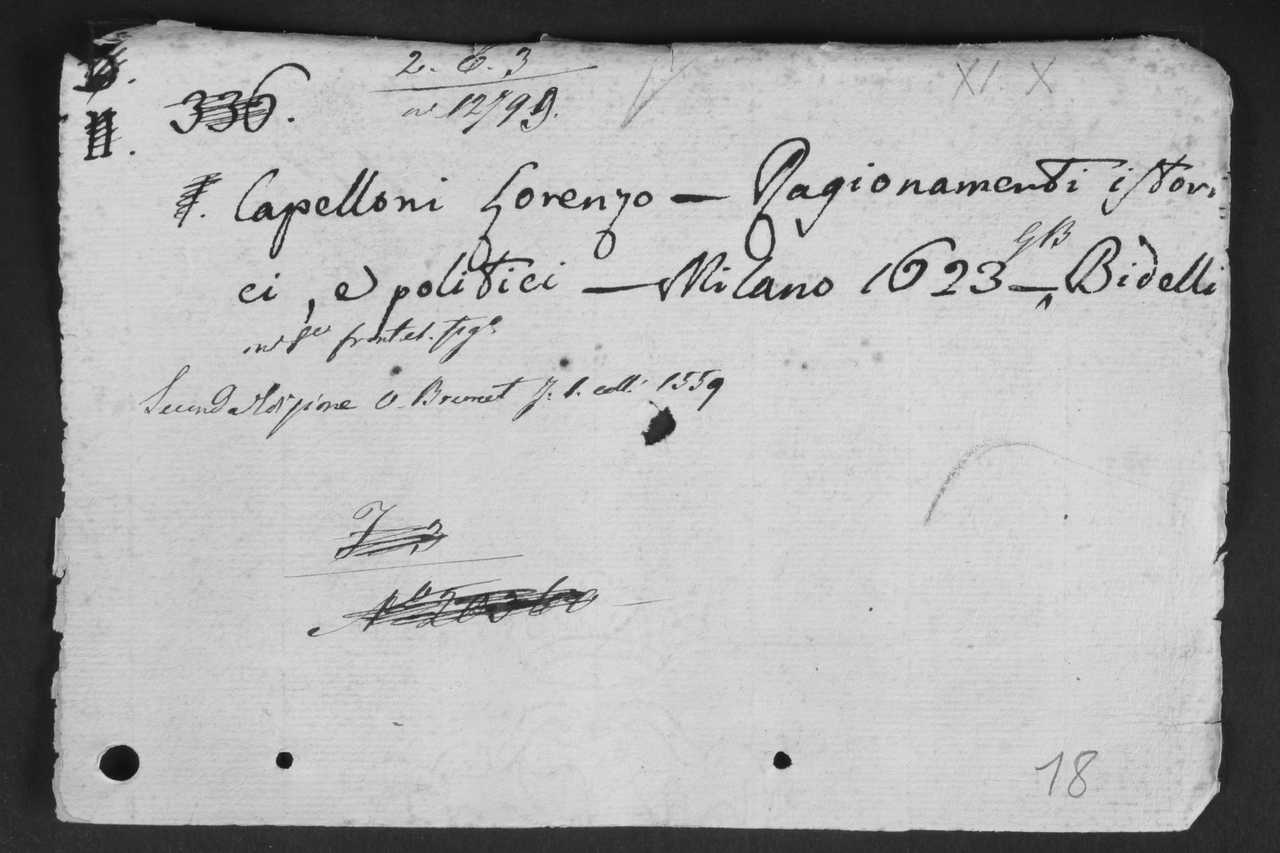 2. 6. 3
XI. X
336.
n° 12799.
Capelloni Lorenzo — Ragionamenti istori
GB
ci, e politici — Milano 1623 — Bidelli
in 8vo frontesp. fig°
Seconda edizione V. Brunet T. 1. coll. 1559
N° 20360
18